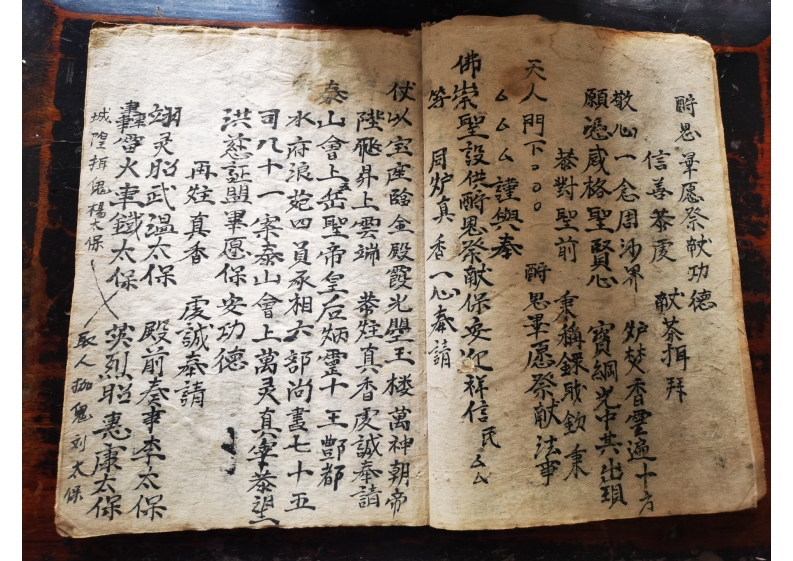 酧恩畢愿祭献功德
信善恭虔　献茶揖拜
敬心一念周沙界　炉焚香雲遍十方
願憑咸格聖賢心　寶網光中共出現
恭對聖前　秉稱録职欽秉
天人門下○○○　酧恩畢愿祭献法事
厶厶厶謹與奉
佛崇聖設供酧恩祭献保安迎祥信民厶厶
等　同炉真香一心奉請
伏以宝座臨金殿霞光塱玉楼萬神朝帝
陛飛昇上雲端　恭炷真香虔誠奉請
泰山會上五岳聖帝皇后炳靈十王酆都
水府浪苑四員丞相六部尚書七十五
司八十一案泰山會上萬灵真宰恭望
洪慈証盟畢愿保安功德
再炷真香　虔誠奉請
翊灵昭武温太保　殿前奏事李太保
雷火車鐵太保　英烈昭惠康太保
城隍揖鬼楊太保　取人抝鬼刘太保